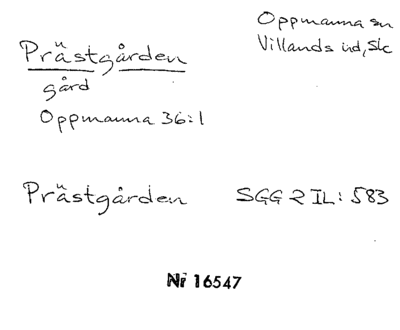 Oppmanna sn
Villands hd, Sk
Prästgården
gård
Oppmanna 36:1
Prästgården SGG 2 IL: 583
Nr 16547